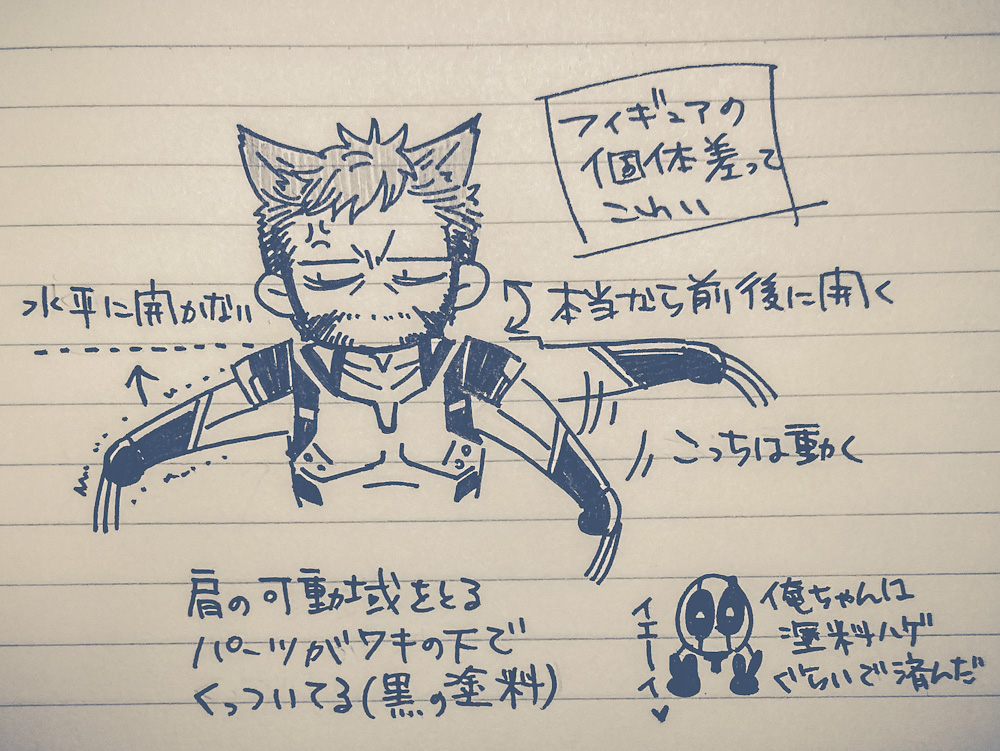 フィギュアの
個体差って
こわい
水平に開かない
本当なら前後に開く
こっちは動く
肩の可動域をとる
パーツがワキの下で
くっついてる(黒の塗料)
イエーイ♥
俺ちゃんは
塗料ハゲ
ぐらいで済んだ